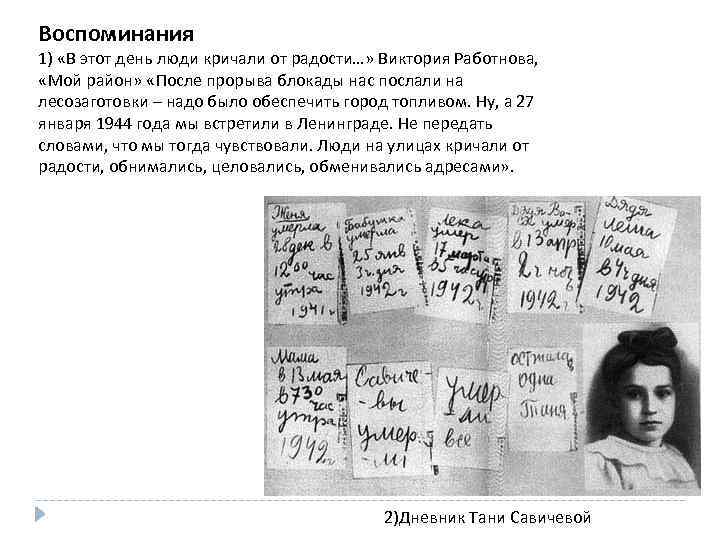 Воспоминания
1) «В этот день люди кричали от радости…» Виктория Работнова,
«Мой район» «После прорыва блокады нас послали на
лесозаготовки – надо было обеспечить город топливом. Ну, а 27
января 1944 года мы встретили в Ленинграде. Не передать
словами, что мы тогда чувствовали. Люди на улицах кричали от
радости, обнимались, целовались, обменивались адресами» .
Женя
умерла
28 дек в
12 00 час
утра
1941 г
Бабушка
умерла
25 янв
3 ч. дня
1942 г
Лека
умер
17 марта
в 5 час утр
1942 г
Дядя Ва-
умер
в 13 апр
2 ч ноч
1942 г
Дядя
Леша
10 мая
в 4 ч дня
1942
Мама
в 13 мая
в 730
час
утра
1942 г
Савиче-
-вы
умер-
-ли
умер
ли
все
осталась
одна
Таня
2)Дневник Тани Савичевой